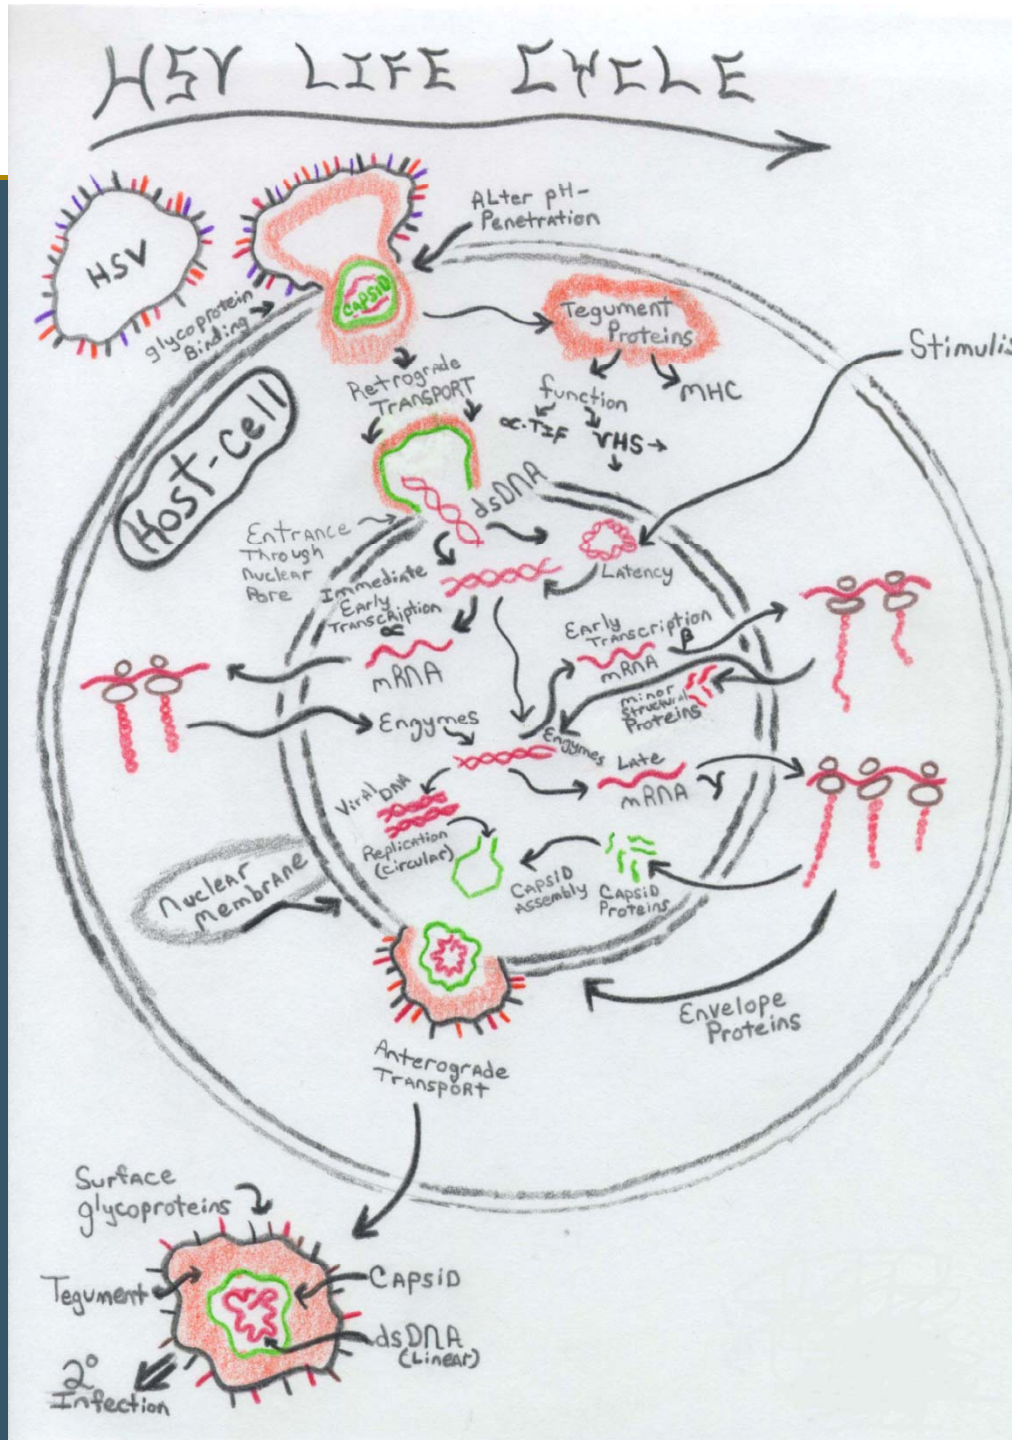 HSV LIFE CYCLE
ALter pH-
Penetration
HSV
CAPSID
glycoprotein
Binding
Tegument
Proteins
Stimulis
Retrograde
TRANSPORT
function
MHC
∝-TIF
VHS
Host-Cell
dsDNA
Entrance
Through
Nuclear
Pore
Latency
Immediate
Early
Transcription
∝
mRNA
Early
Transcription
β
mRNA
minor
Structural
Proteins
Enzymes
Enzymes
Late
mRNA
γ
Viral DNA
Replication
(Circular)
CAPSID
Assembly
CAPSID
Proteins
Nuclear
Membrane
Envelope
Proteins
Anterograde
TRANSPORt
Surface
glycoproteins
Tegument
CAPSID
dsDNA
(Linear)
2°
Infection